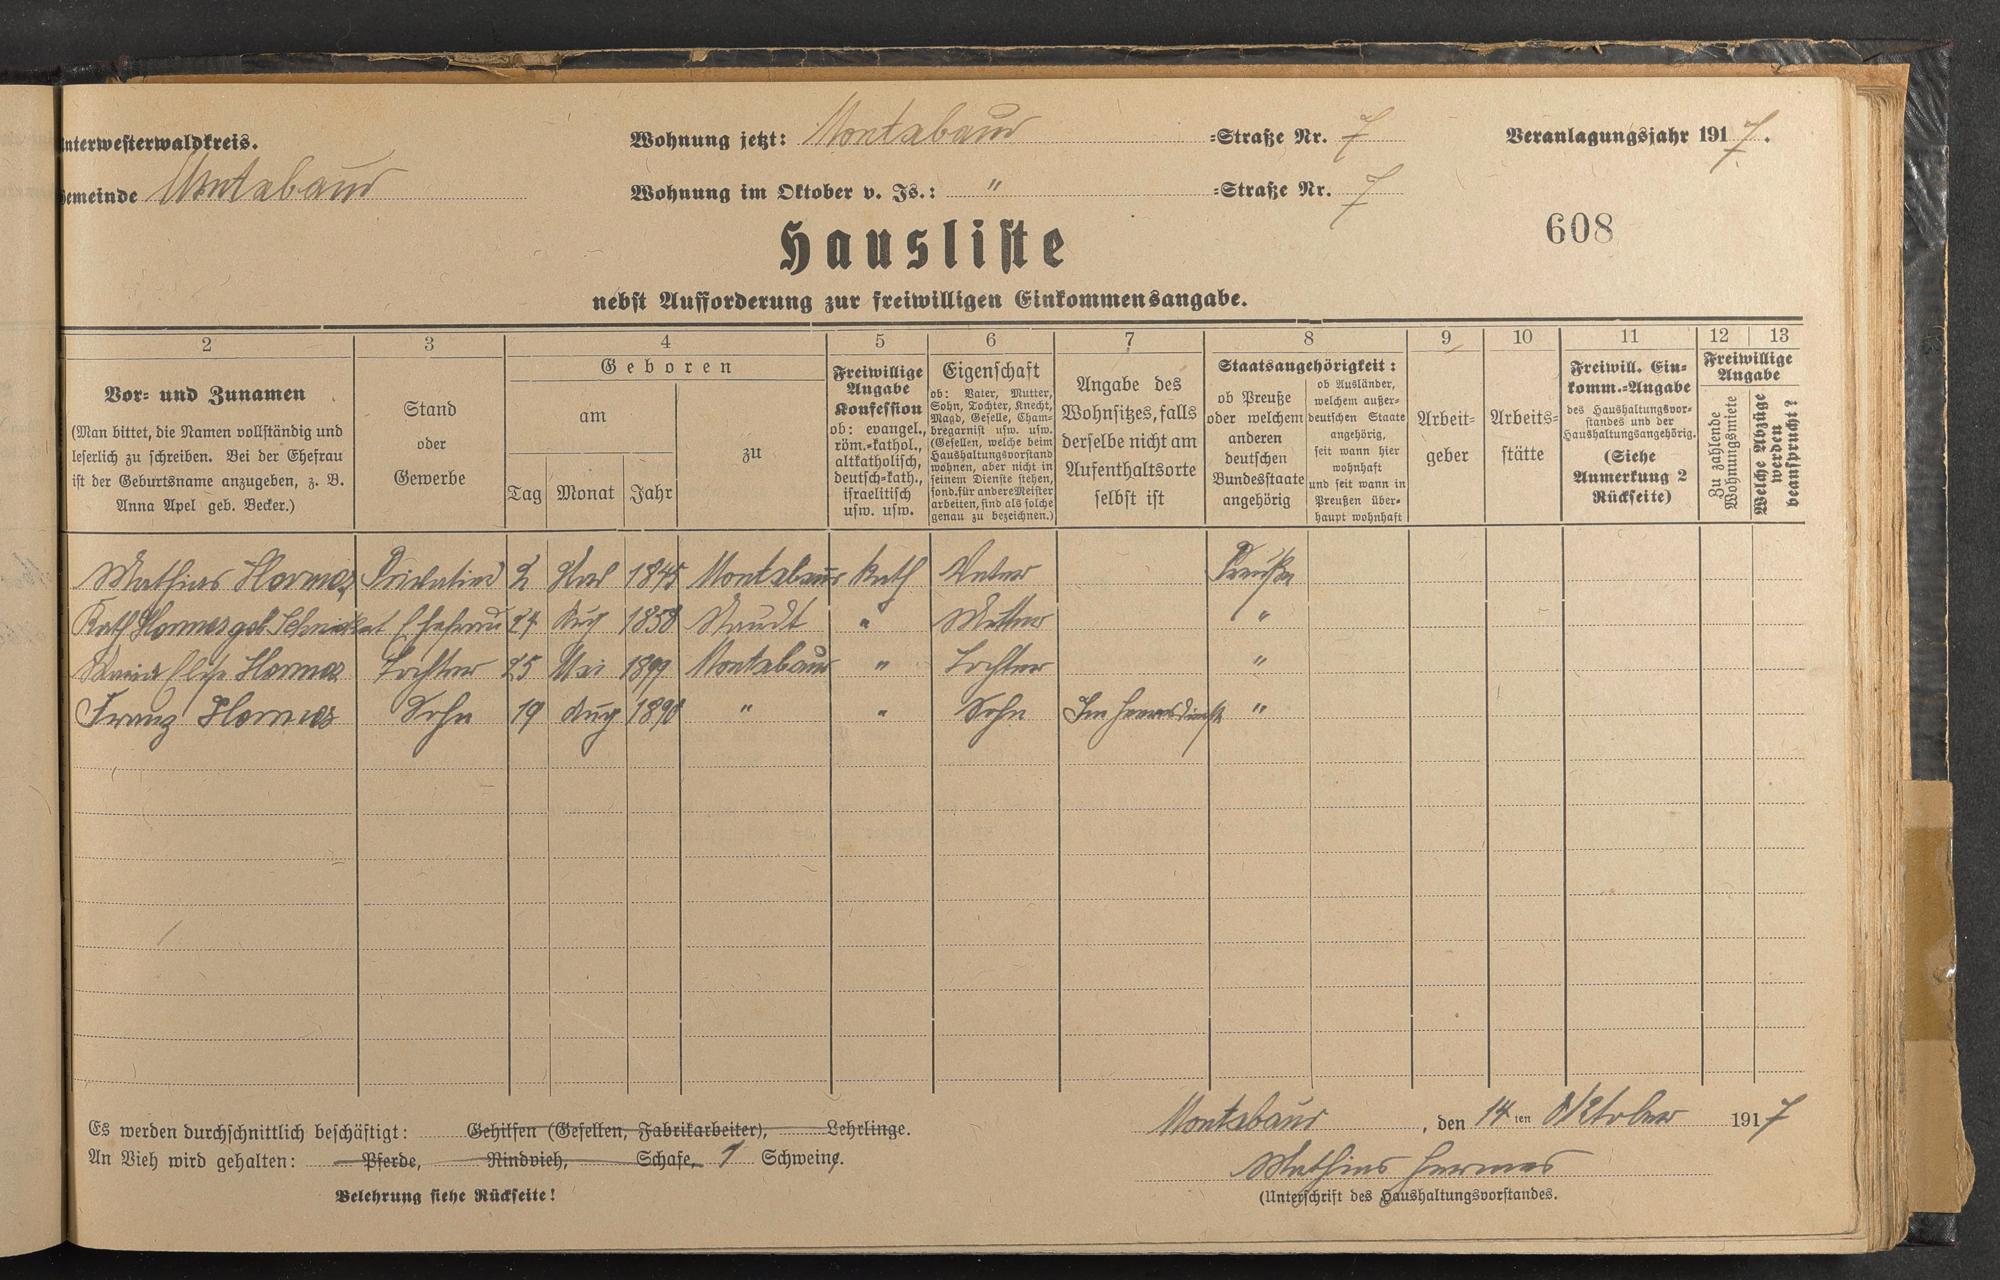 Unterwesterwaldkreis.
Gemeinde Montabaur
Wohnung jetzt: Montabaur -Straße Nr. 7
Wohnung im Oktober v. Js.: " -Straße Nr. 7
Veranlagungsjahr 1917.
608
Hausliste
nebst Aufforderung zur freiwilligen Einkommensangabe.
2 3 4 5 6 7 8 9 10 11 12 13
Vor- und Zunamen
(Man bittet, die Namen vollständig und
leserlich zu schreiben. Bei der Ehefrau
ist der Geburtsname anzugeben, z. B.
Anna Apel geb. Becker.)
Stand
oder
Gewerbe
Geboren
am
Tag Monat Jahr
zu
Freiwillige
Angabe
Konfession
ob: evangel.,
röm.-kathol.,
altkatholisch,
deutsch-kath.,
israelitisch
usw. usw.
Eigenschaft
ob: Vater, Mutter,
Sohn, Tochter, Knecht,
Magd, Geselle, Cham-
bregarnist usw. usw.
(Gesellen, welche beim
Haushaltungsvorstand
wohnen, aber nicht in
seinem Dienste stehen,
sond. für andere Meister
arbeiten, sind als solche
genau zu bezeichnen.)
Angabe des
Wohnsitzes, falls
derselbe nicht am
Aufenthaltsorte
selbst ist
Staatsangehörigkeit:
ob Preuße
oder welchem
anderen
deutschen
Bundesstaate
angehörig
ob Ausländer,
welchem außer-
deutschen Staate
angehörig,
seit wann hier
wohnhaft
und seit wann in
Preußen über-
haupt wohnhaft
Arbeit-
geber
Arbeits-
stätte
Freiwill. Ein-
komm.-Angabe
des Haushaltungsvor-
standes und der
Haushaltungsangehörig.
(Siehe
Anmerkung 2
Rückseite)
Freiwillige
Angabe
Zu zahlende
Wohnungsmiete
Welche Abzüge
werden
beansprucht?
Mathias Hermes Privatier 2 1845 Montabaur kath Vater Preuße
Kath Hermes geb Ehefrau 24 Aug 1858 Staudt " Mutter "
Maria Elise Hermes Tochter 25 Mai 1899 Montabaur " Tochter "
Franz Hermes Sohn 19 Aug 1890 " " Sohn Im Heeresdienst "
Es werden durchschnittlich beschäftigt: Gehilfen (Gesellen, Fabrikarbeiter), Lehrlinge.
An Vieh wird gehalten: Pferde, Rindvieh, Schafe, 1 Schweine.
Belehrung siehe Rückseite!
Montabaur, den 14ten Oktober 1917
Mathias Hermes
(Unterschrift des Haushaltungsvorstandes.